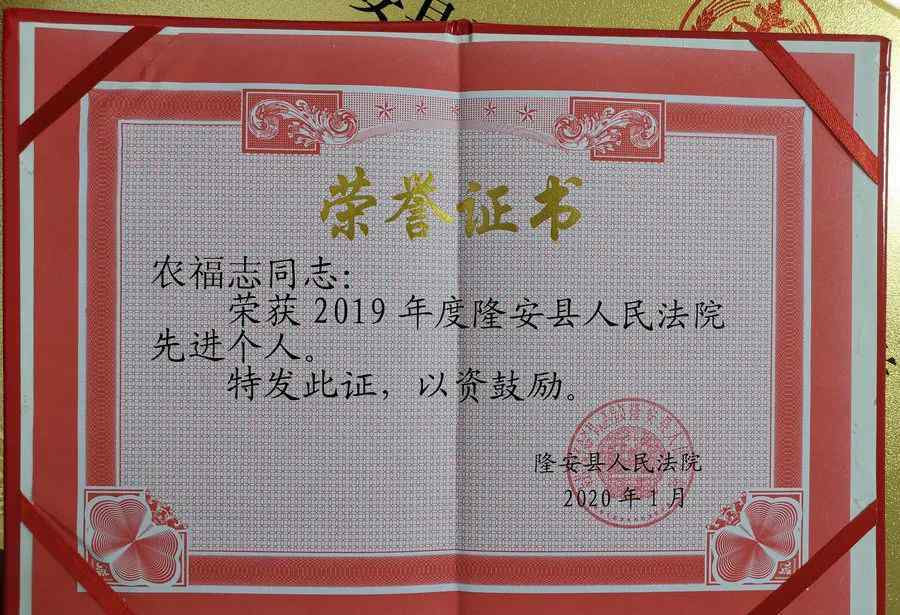 安县
荣誉证书
农福志同志：
荣获 2019 年度隆安县人民法院
先进个人。
特发此证，以资鼓励。
隆安县人民法院
2020 年 1 月